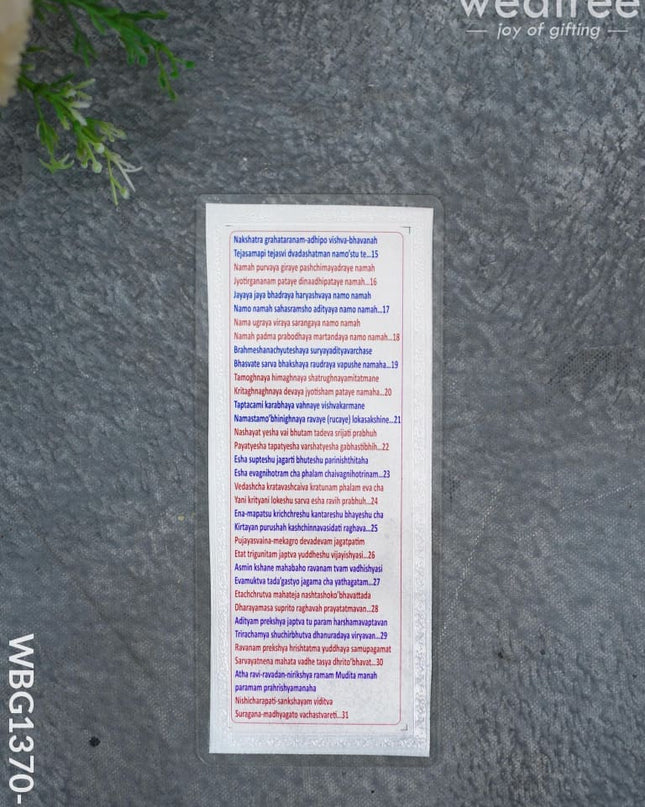 wedtree
— joy of gifting —
Nakshatra grahataranam-adhipo vishva-bhavanah
Tejasamapi tejasvi dvadashatman namo'stu te...15
Namah purvaya giraye pashchimayadraye namah
Jyotirgananam pataye dinaadhipataye namah...16
Jayaya jaya bhadraya haryashvaya namo namah
Namo namah sahasramsho adityaya namo namah...17
Nama ugraya viraya sarangaya namo namah
Namah padma prabodhaya martandaya namo namah...18
Brahmeshanachyuteshaya suryayadityavarchase
Bhasvate sarva bhakshaya raudraya vapushe namaha...19
Tamoghnaya himaghnaya shatrughnayamitatmane
Kritaghnaghnaya devaya jyotisham pataye namaha...20
Taptacami karabhaya vahnaye vishvakarmane
Namastamo'bhinighnaya ravaye (rucaye) lokasakshine...21
Nashayat yesha vai bhutam tadeva srijati prabhuh
Payatyesha tapatyesha varshatyesha gabhastibhih...22
Esha supteshu jagarti bhuteshu parinishthitaha
Esha evagnihotram cha phalam chaivagnihotrinam...23
Vedashcha kratavashcaiva kratunam phalam eva cha
Yani krityani lokeshu sarva esha ravih prabhuh...24
Ena-mapatsu krichchreshu kantareshu bhayeshu cha
Kirtayan purushah kashchinnavasidati raghava...25
Pujayasvaina-mekagro devadevam jagatpatim
Etat trigunitam japtva yuddheshu vijayishyasi...26
Asmin kshane mahabaho ravanam tvam vadhishyasi
Evamuktva tada'gastyo jagama cha yathagatam...27
Etachchrutva mahateja nashtashoko'bhavattada
Dharayamasa suprito raghavah prayatatmavan...28
Adityam prekshya japtva tu param harshamavaptavan
Trirachamya shuchirbhutva dhanuradaya viryavan...29
Ravanam prekshya hrishtatma yuddhaya samupagamat
Sarvayatnena mahata vadhe tasya dhrito'bhavat...30
Atha ravi-ravadan-nirikshya ramam Mudita manah
paramam prahrishyamanaha
Nishicharapati-sankshayam viditva
Suragana-madhyagato vachastvareti...31
WBG1370-